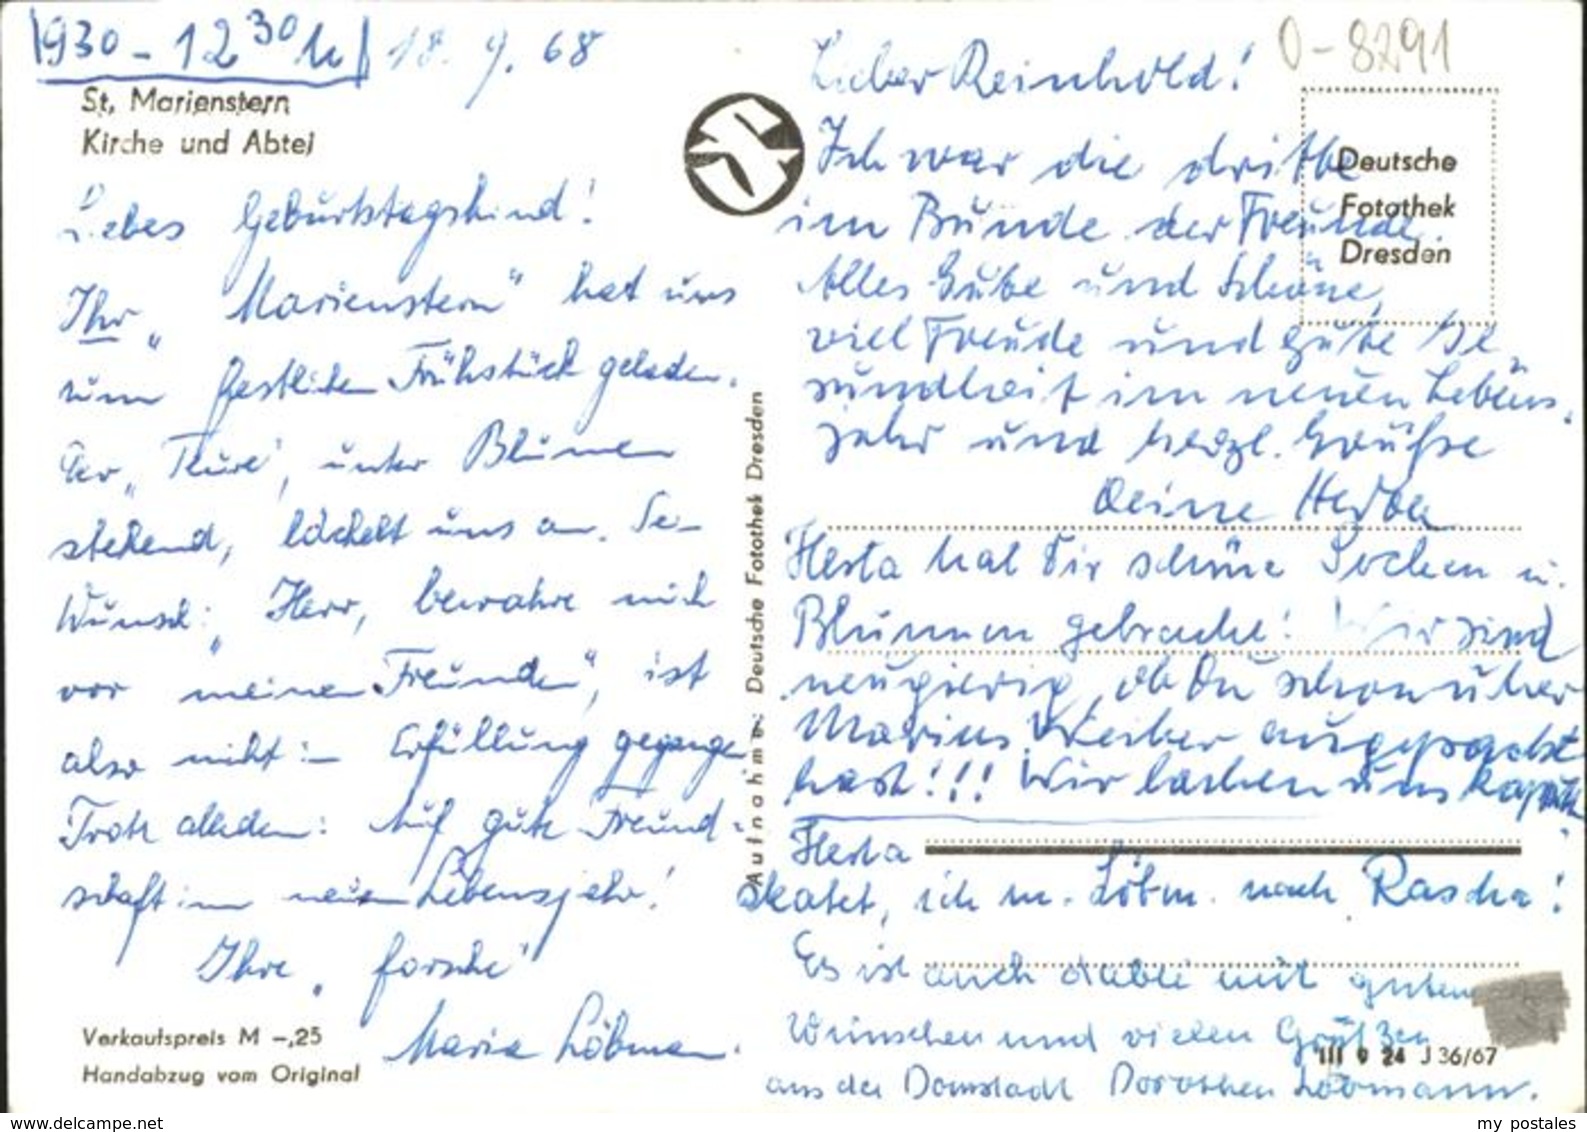 930 - 12 30 h 18. 9. 68
St. Marienstern
Kirche und Abtei
Liebes Geburtstagskind!
Ihr „Marienstern" hat uns
zum festlichen Frühstück geladen.
stehend, lächelt uns an. Der
Wunsch: „Herr, bewahre mich
vor meinen Freunden", ist
also nicht in Erfüllung gegangen
Trotz alledem: Auf gute Freund-
schaft im neuen Lebensjahr!
Ihre „forsche"
Maria Löbmann.
Verkaufspreis M -,25
Handabzug vom Original
Aufnahme: Deutsche Fotothek Dresden
O-8291
Deutsche
Fotothek
Dresden
Lieber Reinhold!
Ich war die dritte
im Bunde der Freunde.
Alles Gute und Schöne,
viel Freude und gute Ge-
sundheit im neuen Lebens-
jahr und herzl. Grüsse
Deine
Herta hat Dir schöne Socken u.
Blumen gebracht! Wir sind
neugierig, ob Du schon über
Marias Weiber ausgepackt
hast!!! Wir lachen uns kaputt
Herta
ich m. Löbm. nach
Es ist auch dabei mit guten
Wünschen und vielen Grüßen
aus der Domstadt Dorothea Löbmann.
III 9 24 J 36/67
my postales
www.delcampe.net